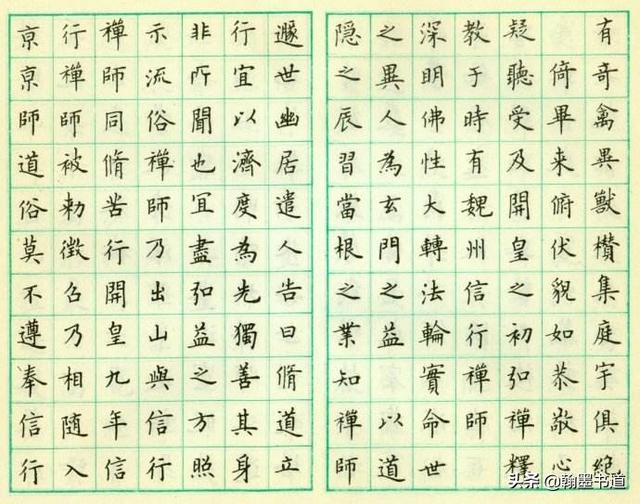 有奇禽異獸欑集庭宇俱絕
倚畢來俯伏貌如恭敬心
疑聽受及開皇之初弘禪釋
教于時有魏州信行禪師
深明佛性大轉法輪實命世
之異人為玄門之益以道
隱之辰習當根之業知禪師
遯世幽居遣人告曰脩道立
行宜以濟度為先獨善其身
非所聞也宜盡弘益之方照
示流俗禪師乃出山與信行
禪師同脩苦行開皇九年信
行禪師被勅徵召乃相隨入
京京師道俗莫不遵奉信行
头条 @翰墨书道